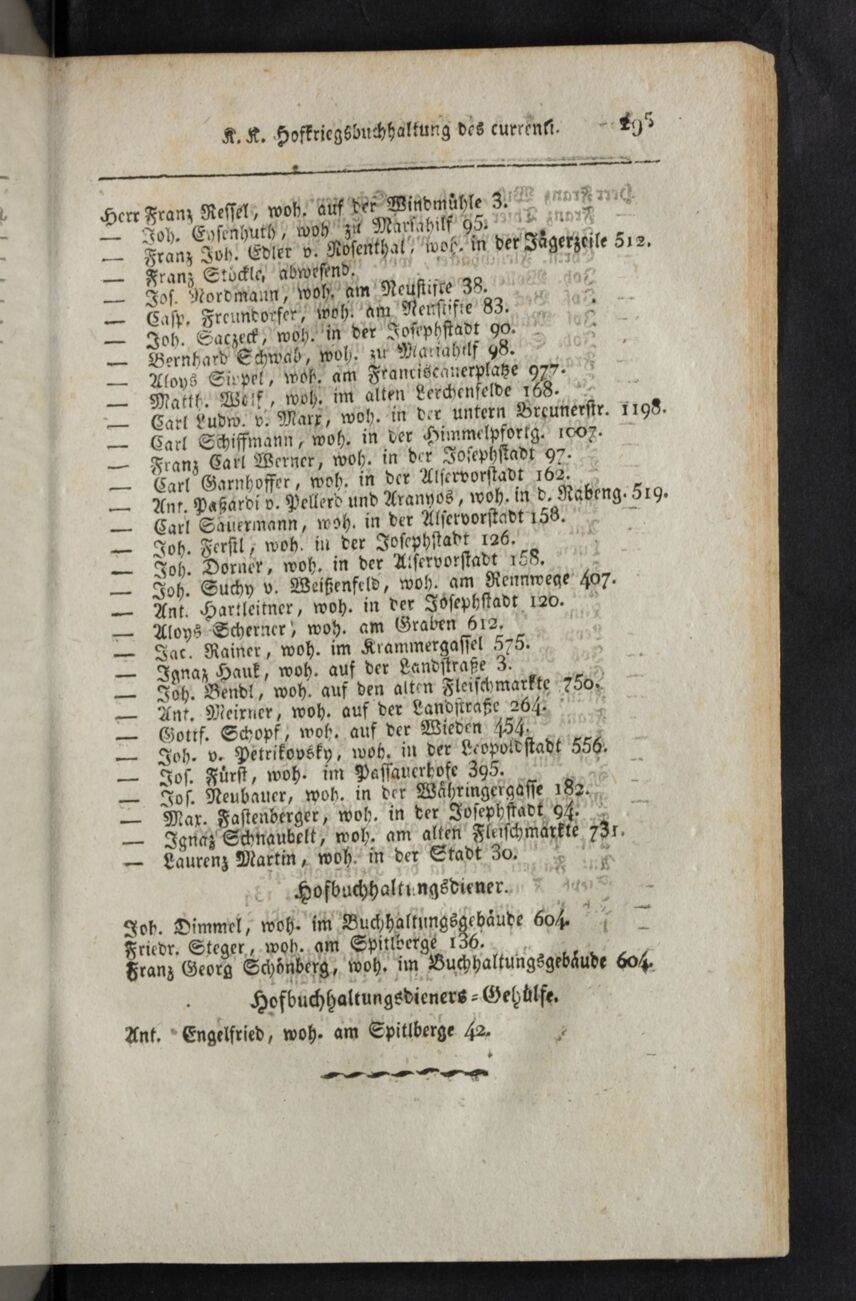 K. K. Hofkriegsbuchhaltung des currenti. 195
Herr Franz Ressel, woh. auf der Windmühle 3.
— Joh. Eysenhuth, woh. zu Mariahilf 95.
— Franz Joh. Edler v. Rosenthal, woh. in der Jägerzeile 512.
— Franz Stöckle, abwesend.
— Jos. Nordmann, woh. am Neustifte 38.
— Casp. Freundorfer, woh. am Neustifte 83.
— Joh. Saczeck, woh. in der Josephstadt 90.
— Bernhard Schwab, woh. zu Mariahilf 98.
— Aloys Sippel, woh. am Franciscanerplatze 977.
— Matth. Wolf, woh. im alten Lerchenfelde 168.
— Carl Ludw. v. Marx, woh. in der untern Breunerstr. 1198.
— Carl Schiffmann, woh. in der Himmelpfortg. 1007.
— Franz Carl Werner, woh. in der Josephstadt 97.
— Carl Garnhoffer, woh. in der Alservorstadt 162.
— Ant. Paßardi v. Pellerd und Aranyos, woh. in d. Rabeng. 519.
— Carl Sauermann, woh. in der Alservorstadt 158.
— Joh. Ferstl, woh. in der Josephstadt 126.
— Joh. Dorner, woh. in der Alservorstadt 158.
— Joh. Suchy v. Weißenfeld, woh. am Rennwege 407.
— Ant. Hartleitner, woh. in der Josephstadt 120.
— Aloys Scherner, woh. am Graben 612.
— Jac. Rainer, woh. im Krammergassel 575.
— Ignaz Hauk, woh. auf der Landstraße 3.
— Joh. Bendl, woh. auf den alten Fleischmarkte 750.
— Ant. Meixner, woh. auf der Landstraße 264.
— Gottf. Schopf, woh. auf der Wieden 454.
— Joh. v. Petrikovsky, woh. in der Leopoldstadt 556.
— Jos. Fürst, woh. im Passauerhofe 395.
— Jos. Neubauer, woh. in der Währingergasse 182.
— Max. Fastenberger, woh. in der Josephstadt 94.
— Ignaz Schnaubelt, woh. am alten Fleischmarkte 731.
— Laurenz Martin, woh. in der Stadt 30.
Hofbuchhaltungsdiener.
Joh. Dimmel, woh. im Buchhaltungsgebäude 604.
Friedr. Steger, woh. am Spitlberge 136.
Franz Georg Schönberg, woh. im Buchhaltungsgebäude 604.
Hofbuchhaltungsdieners=Gehülfe.
Ant. Engelfried, woh. am Spitlberge 42.